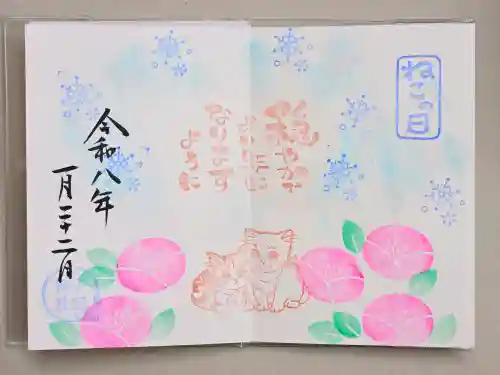 ねこの日
穏やかで
よい年に
なります
ように
令和八年
一月二十二日